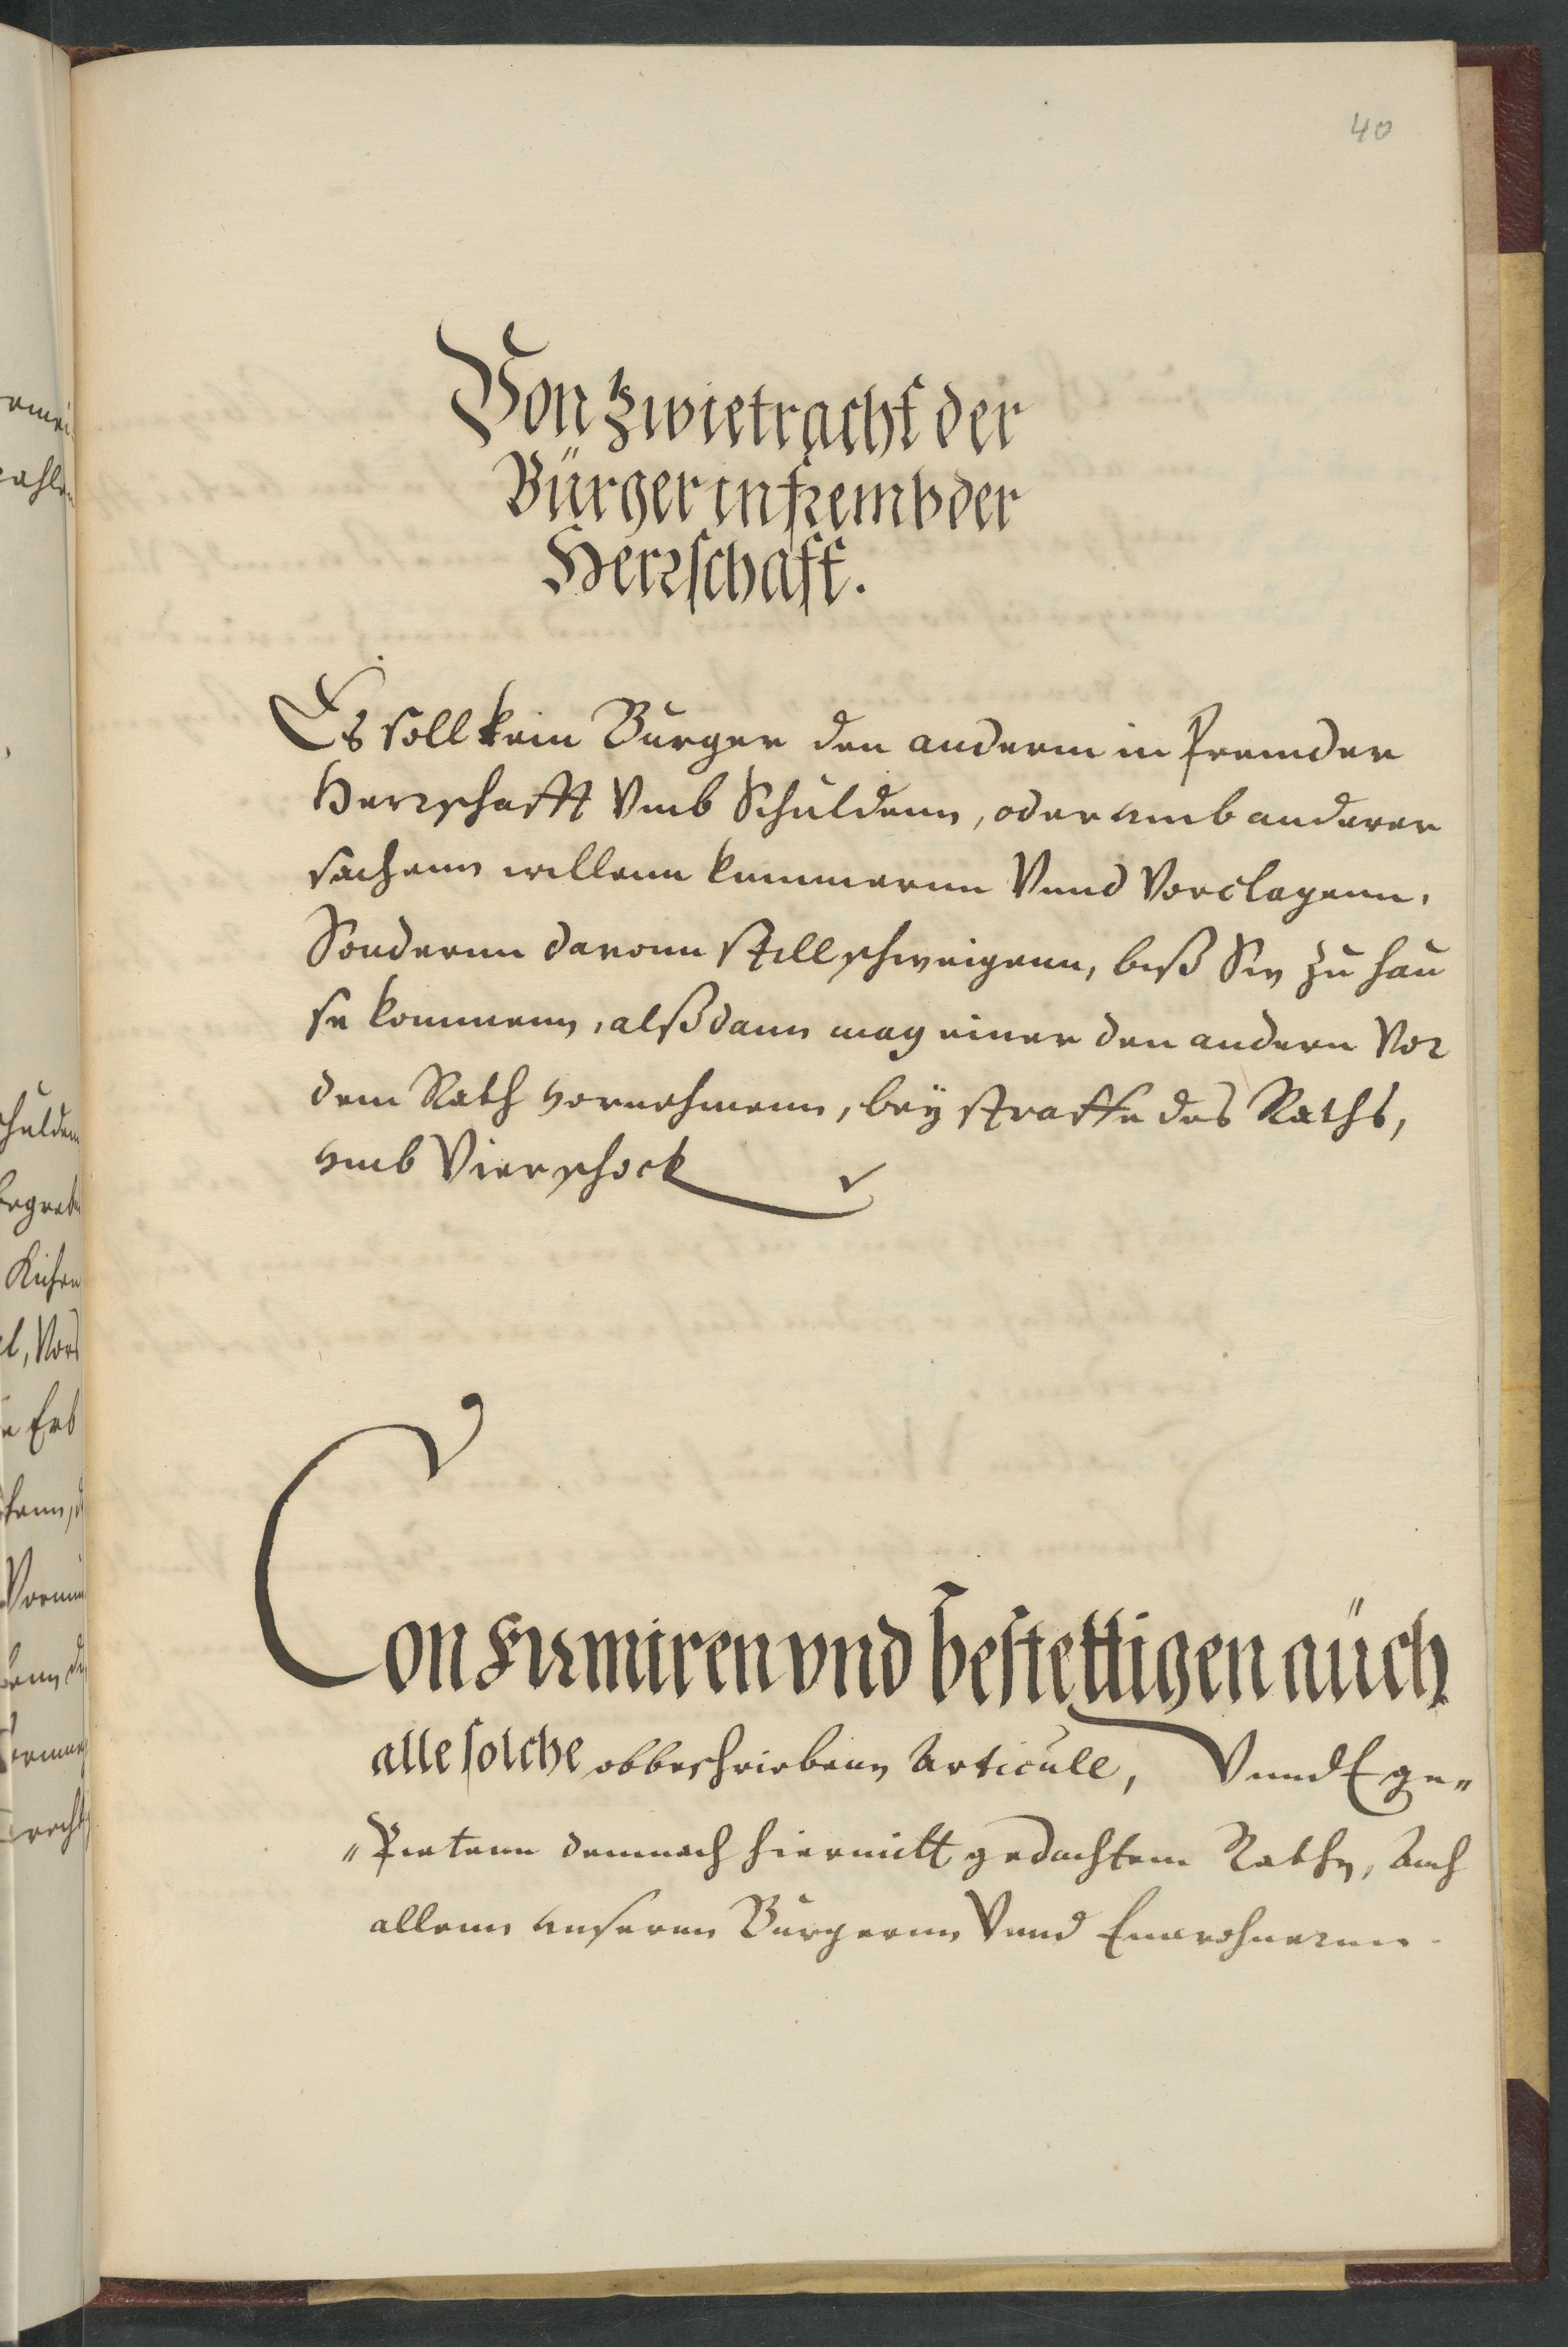 40
Von Zwietracht der
Bürger in frembder
Herrschafft.
Es soll kein Burger den anderm in fremder
Herrschafft Vmb Schuldenn, oder vmb anderer
sachenn willenn kummernn Vnnd Vorclagenn,
Sondernn daronn stillschweigenn, biß Sie zu hau
se kommenn, alßdann mag einer den andern Vor
dem Rath vornehmenn, beÿ straffe des Raths,
vmb Vier schock
Confirmiren vnd bestettigen auch
alle solche obbeschriebenn Articule, Vnnd Ege„
„ Pietenn demnach hiermitt gedachtem Rathe, Auch
allenn vnsernn Burgernn Vnnd Einwohnernn